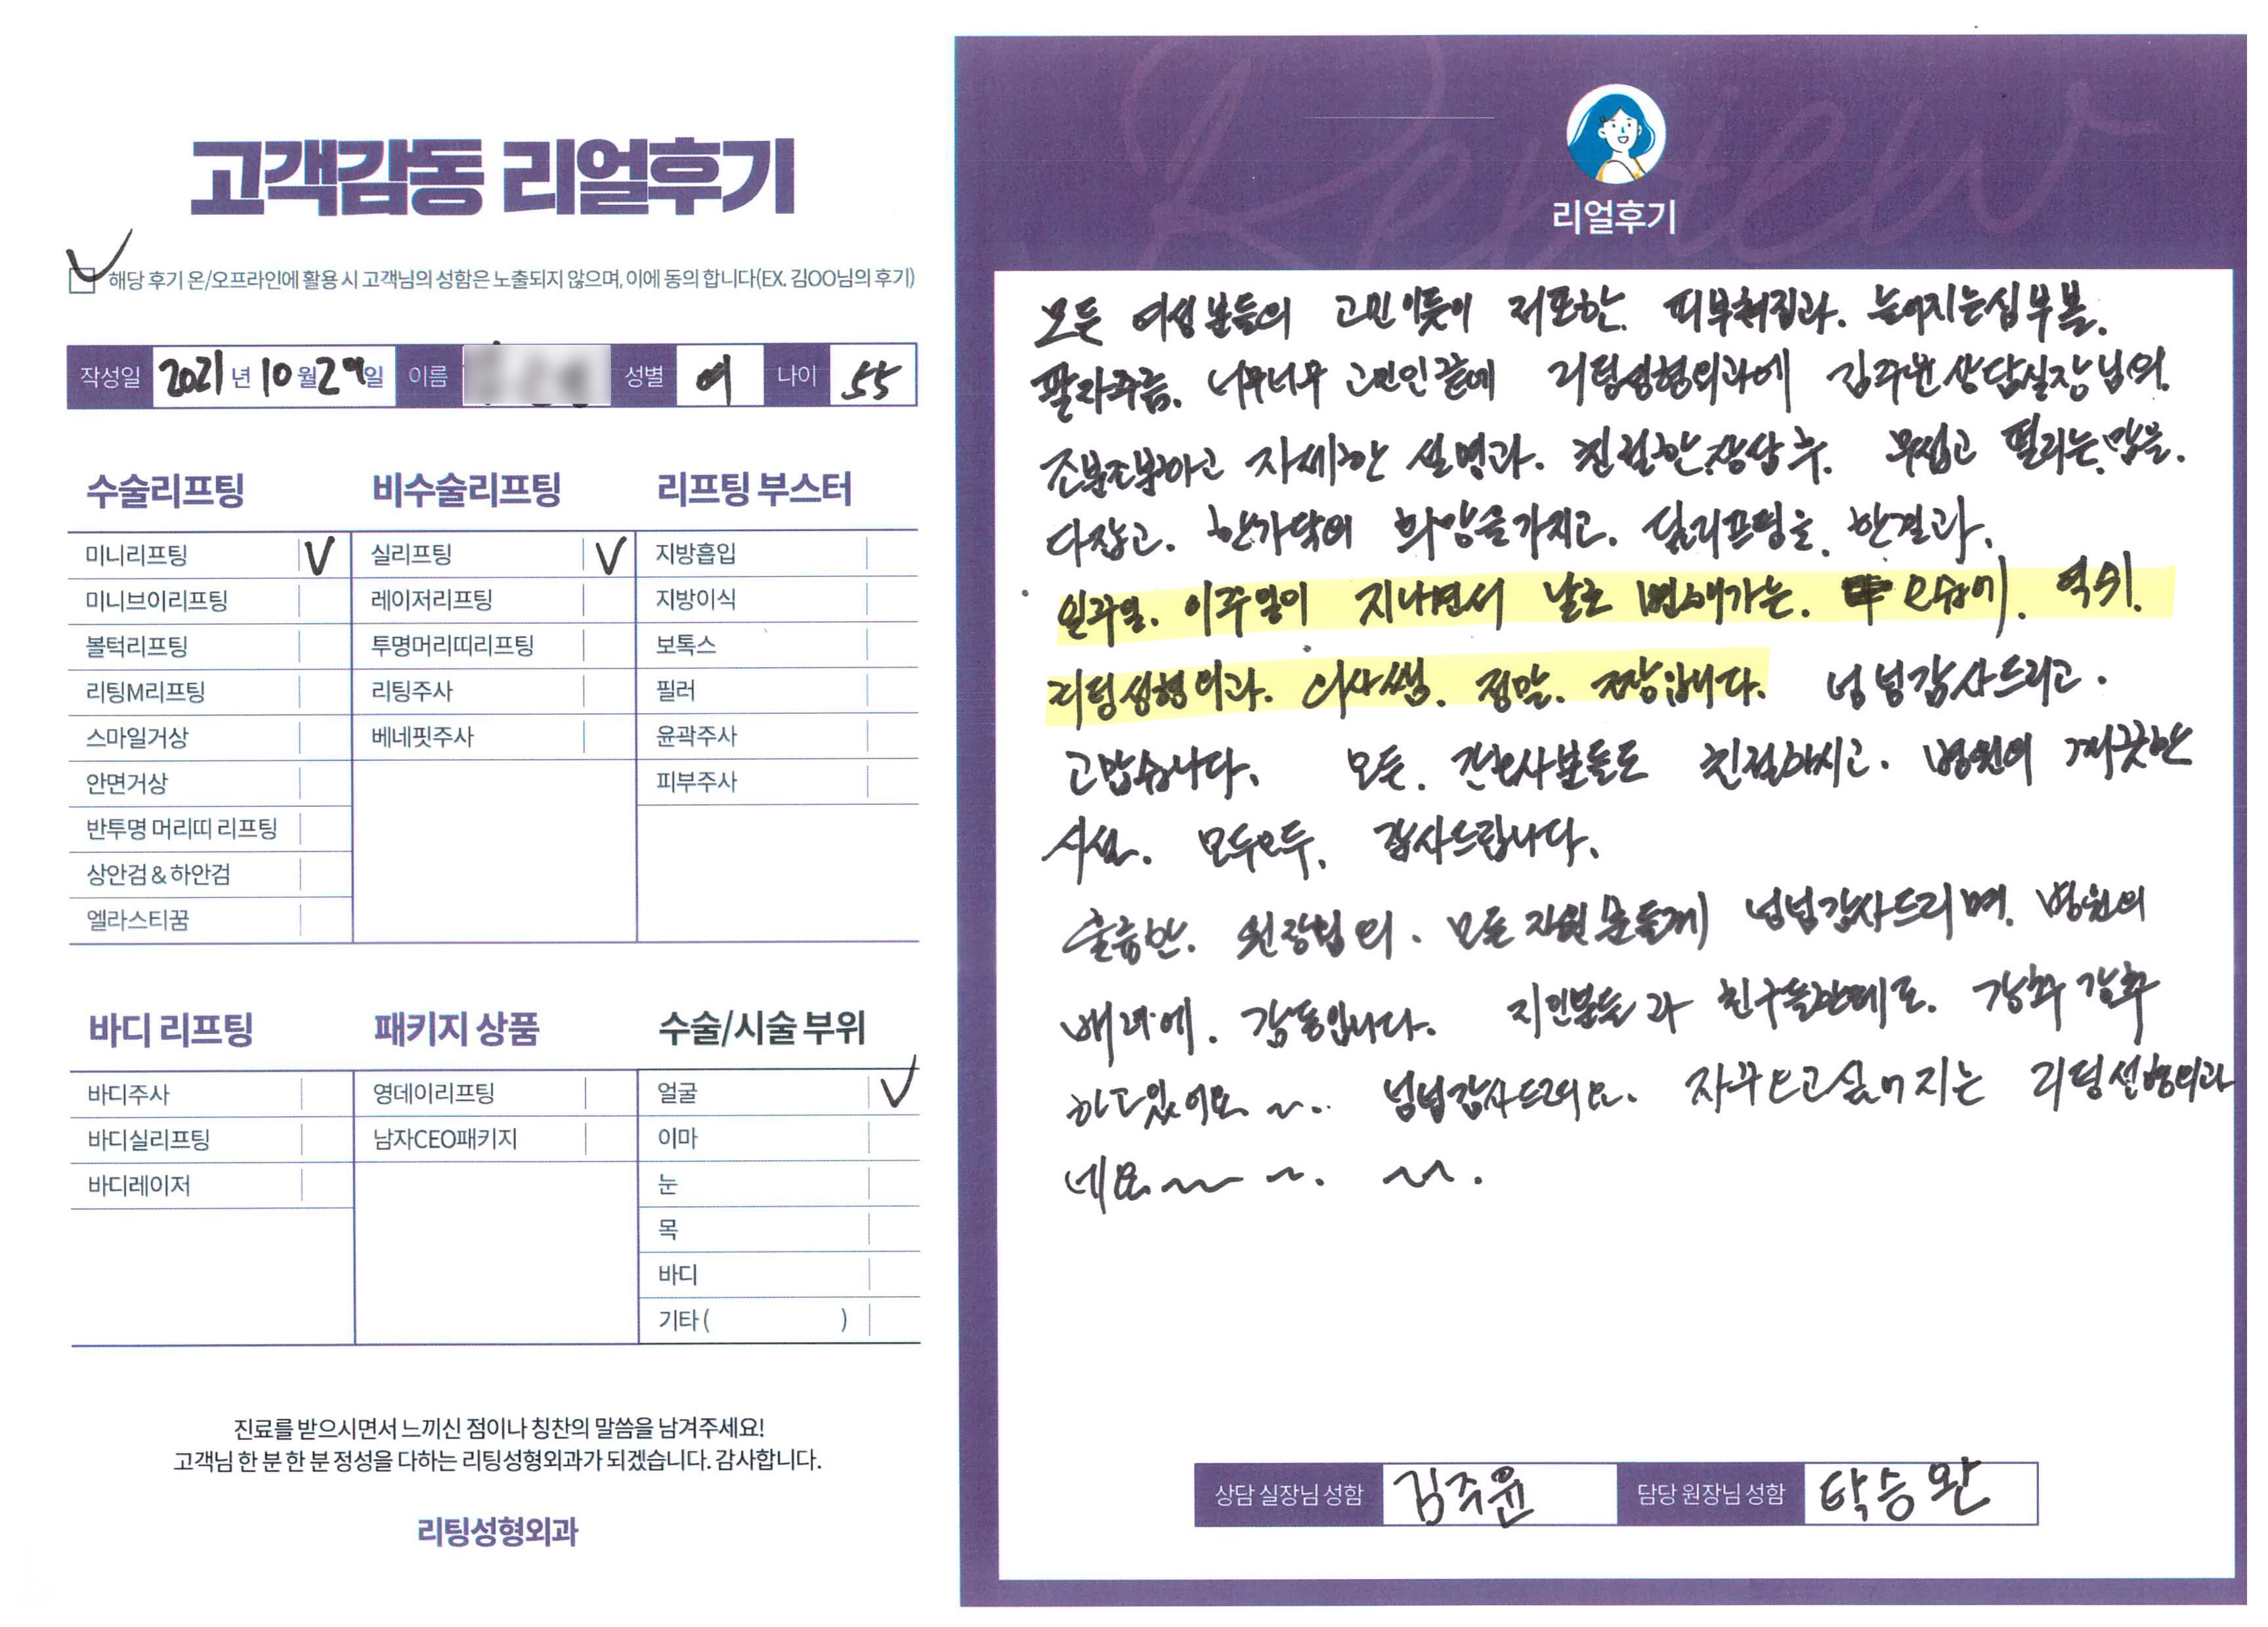 고객감동 리얼후기
해당 후기 온/오프라인에 활용 시 고객님의 성함은 노출되지 않으며, 이에 동의 합니다(EX. 김OO님의 후기)
작성일 2021년 10월 29일 이름 성별 여 나이 55
수술리프팅
미니리프팅 V
미니브이리프팅
볼턱리프팅
리팅M리프팅
스마일거상
안면거상
반투명 머리띠 리프팅
상안검 & 하안검
엘라스티꿈
비수술리프팅
실리프팅 V
레이저리프팅
투명머리띠리프팅
리팅주사
베네핏주사
리프팅 부스터
지방흡입
지방이식
보톡스
필러
윤곽주사
피부주사
바디 리프팅
바디주사
바디실리프팅
바디레이저
패키지 상품
영데이리프팅
남자CEO패키지
수술/시술 부위
얼굴 V
이마
눈
목
바디
기타 ( )
진료를 받으시면서 느끼신 점이나 칭찬의 말씀을 남겨주세요!
고객님 한 분 한 분 정성을 다하는 리팅성형외과가 되겠습니다. 감사합니다.
리팅성형외과
Review
리얼후기
모든 여성분들의 고민이듯이 저또한. 피부쳐짐과. 늘어지는심부볼.
팔자주름. 너무너무 고민인끝에 리팅성형외과에 김주윤상담실장님의
조분조분하고 자세한 설명과. 친절한 후. 무섭고 떨리는맘을.
다잡고. 한가닥의 희망을가지고. 실리프팅을. 한결과.
일주일. 이주일이 지나면서 날로 변해가는. 모습에). 역쉬.
리팅성형외과. 의사쌤. 정말. 짱입니다. 넘넘감사드리고.
고맙습니다. 모든. 간호사분들도 친절하시고. 병원의 깨끗한
시설. 모두모두. 감사드립니다.
출즁한. 원장님의. 모든 직원분들께 넘넘감사드리며. 병원의
배려에. 감동입니다. 지인분들과 친구들한테도. 강추 강추
하고있어요 ~.. 넘넘감사드려요. 자꾸오고싶어지는 리팅성형외과
네요~~ ~. ~~.
상담 실장님 성함 김주윤 담당 원장님 성함 탁승완